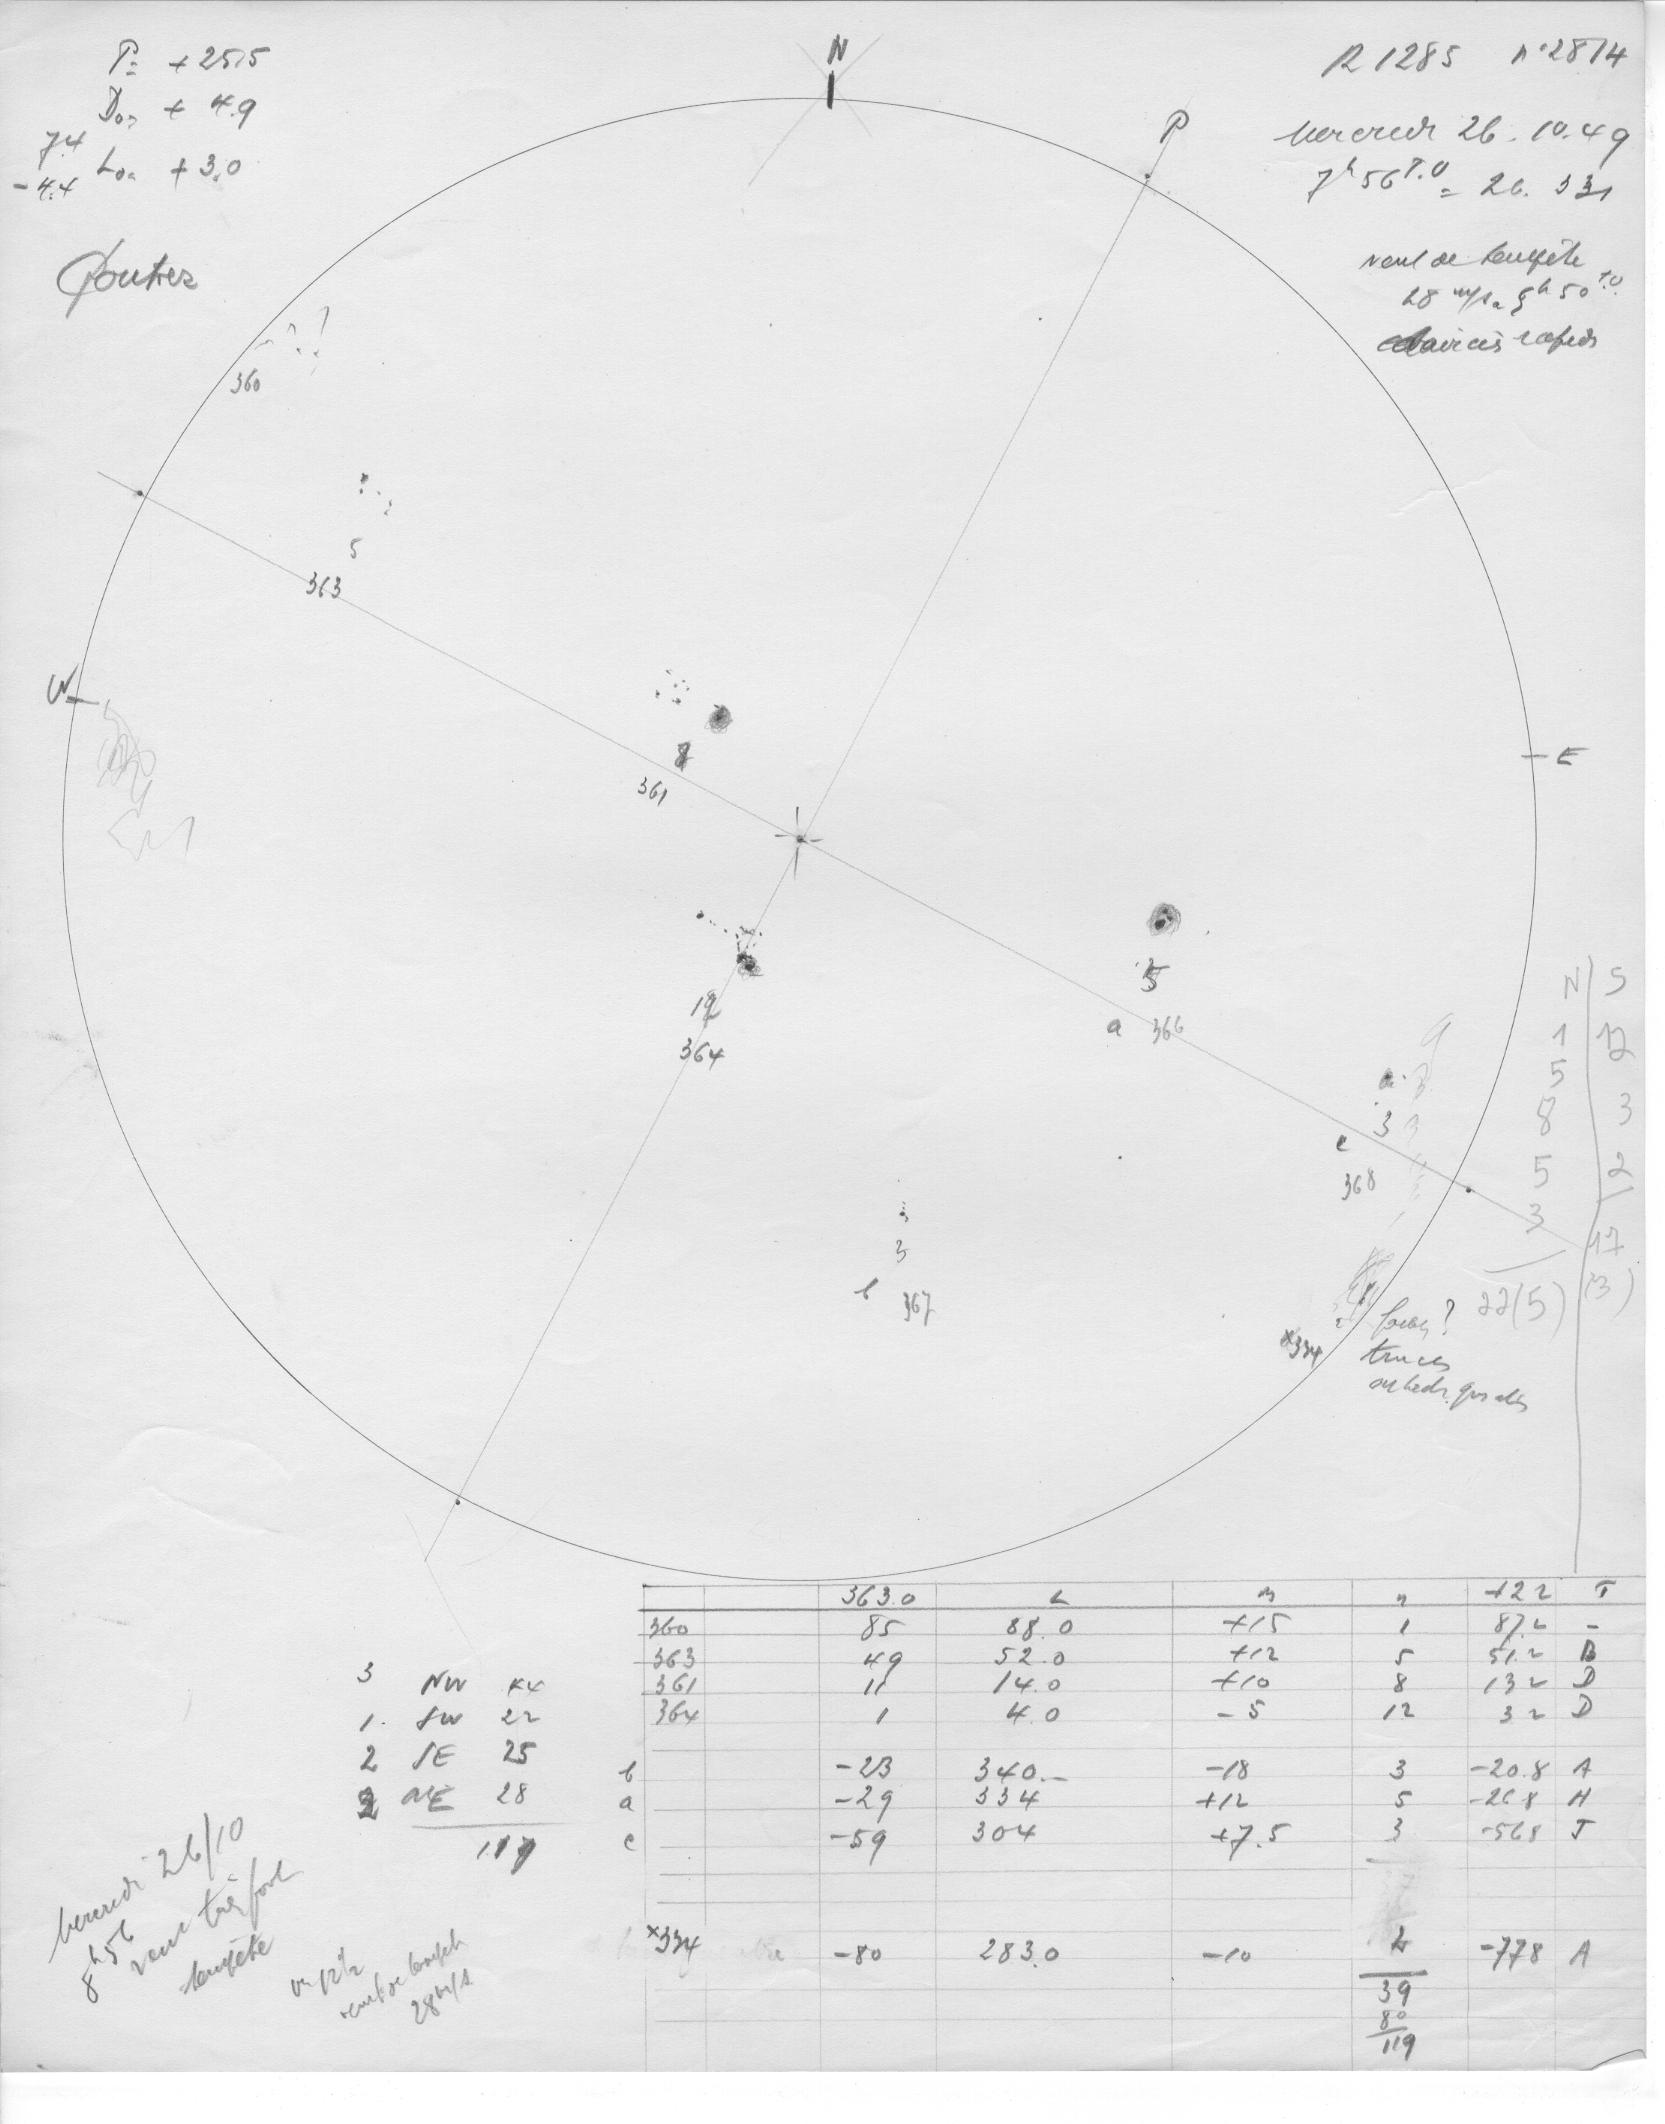 P= +25.5
Do= + 4.9
7.4
-4.4
Lo= +3.0
N
P
R 1285 n°2814
Mercredi 26.10.49
7h56 T.U = 26. 331
vent de tempête
28 m/s a 8h50 T.U.
éclaircies rapides
360
5
363
W
E
8
361
12
364
5
a 366
3
c
368
3
b 367
x334
foies?
traces
N S
1 12
5
8 3
5 2
3
17
22(5) (3)
363.0 L B n +2.2 T
360 85 88.0 +15 1 87.2 -
363 49 52.0 +12 5 51.2 B
361 11 14.0 +10 8 13.2 D
364 1 4.0 -5 12 3.2 D
b -23 340.- -18 3 -20.8 A
a -29 334 +12 5 -26.8 H
c -59 304 +7.5 3 -56.8 J
x334 -80 283.0 -10 2 -77.8 A
39
80
119
3 NW 44
1. SW 22
2 SE 25
2 NE 28
119
Mercredi 26/10
8h56
vent très fort
tempête
vent de tempête
28 m/s